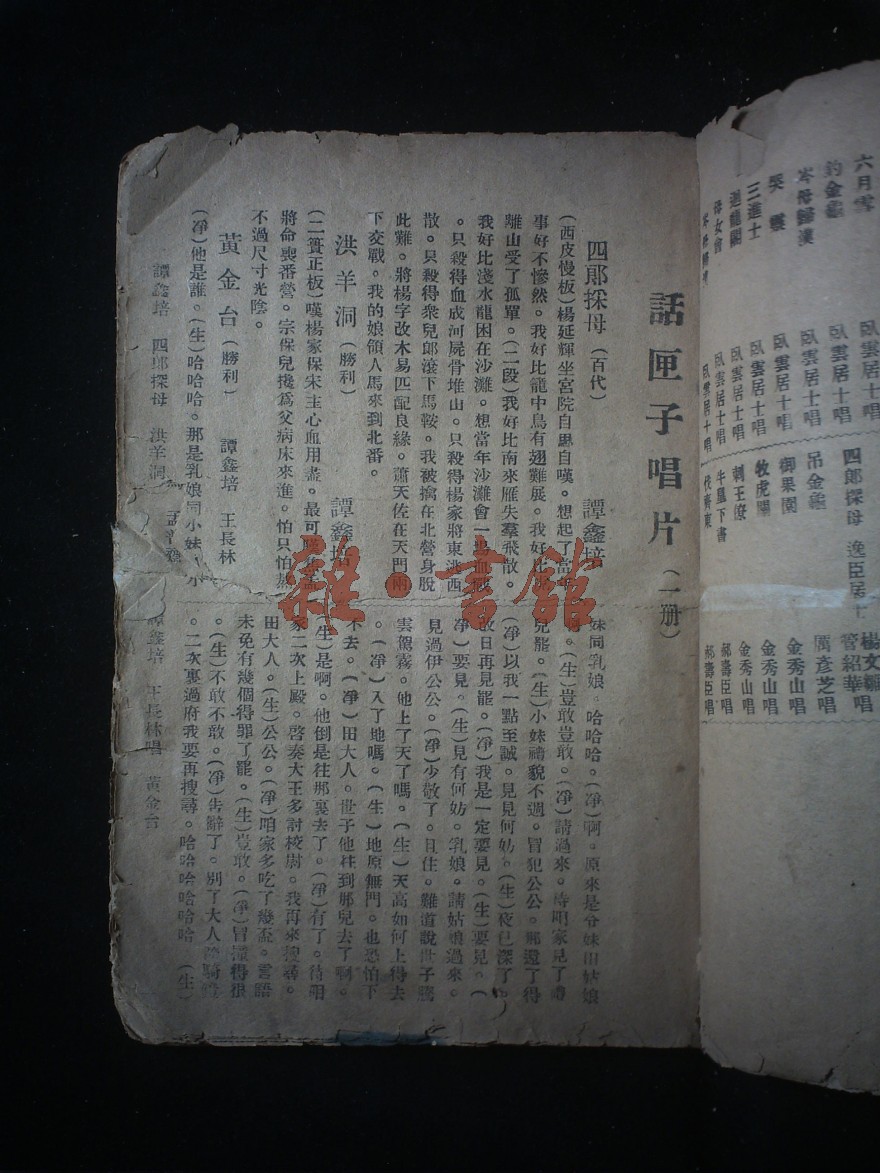 六月雪 臥雲居士唱
釣金龜 臥雲居士唱
岑母歸漢 臥雲居士唱
哭靈 臥雲居士唱
三進士 臥雲居士唱
迴龍閣 臥雲居士唱
母女會 臥雲居士唱
臥雲居士唱
四郎探母 逸臣居士 楊文
管紹華唱
吊金龜 厲彥芝唱
御果園 金秀山唱
牧虎關 金秀山唱
刺王僚 郝壽臣唱
牛皋下書 郝壽臣唱
伐齊東
話匣子唱片(一册)
四郎探母(百代) 譚鑫培
(西皮慢板)楊延輝坐宮院自思自嘆。想起了當年
事好不慘然。我好比籠中鳥有翅難展。我好比虎
離山受了孤單。(二段)我好比南來雁失羣飛散。
我好比淺水龍困在沙灘。想當年沙灘會一塲血戰
。只殺得血成河屍骨堆山。只殺得楊家將東逃西
散。只殺得衆兒郎滾下馬鞍。我被擒在北營身脫
此難。將楊字改木易匹配良緣。蕭天佐在天門兩
下交戰。我的娘領人馬來到北番。
洪羊洞(勝利) 譚鑫培
(二簧正板)嘆楊家保宋主心血用盡。最可嘆
將命喪番營。宗保兒攙爲父病床來進。怕只怕熬
不過尺寸光陰。
黃金台(勝利) 譚鑫培 王長林
(淨)他是誰。(生)哈哈哈。那是乳娘同小妹。小
譚鑫培 四郎探母 洪羊洞
妹同乳娘。哈哈哈。(淨)啊。原來是令妹田姑娘
。(生)豈敢豈敢。(淨)請過來。待咱家見了禮
兒罷。(生)小妹禮貌不週。冒犯公公。那還了得
(淨)以我一點至誠。見見何妨。(生)夜已深了。
改日再見罷。(淨)我是一定要見。(生)要見。(
淨)要見。(生)見有何妨。乳娘。請姑娘過來。
見過伊公公。(淨)少敬了。且住。難道說世子騰
雲駕霧。他上了天了嗎。(生)天高如何上得去
。(淨)入了地嗎。(生)地原無門。也恐怕下
不去。(淨)田大人。世子他往到那兒去了啊。
(生)是啊。他倒是往那裏去了。(淨)有了。待明
家二次上殿。啓奏大王多討校尉。我再來搜尋。
田大人。(生)公公。(淨)咱家多吃了幾盃。言語
未免有幾個得罪了罷。(生)豈敢。(淨)冒瀆得很
。(生)不敢不敢。(淨)告辭了。別了大人
。二次裏過府我要再搜尋。哈哈哈哈哈哈 (生)
譚鑫培 王長林唱 黃金台
雜·書館